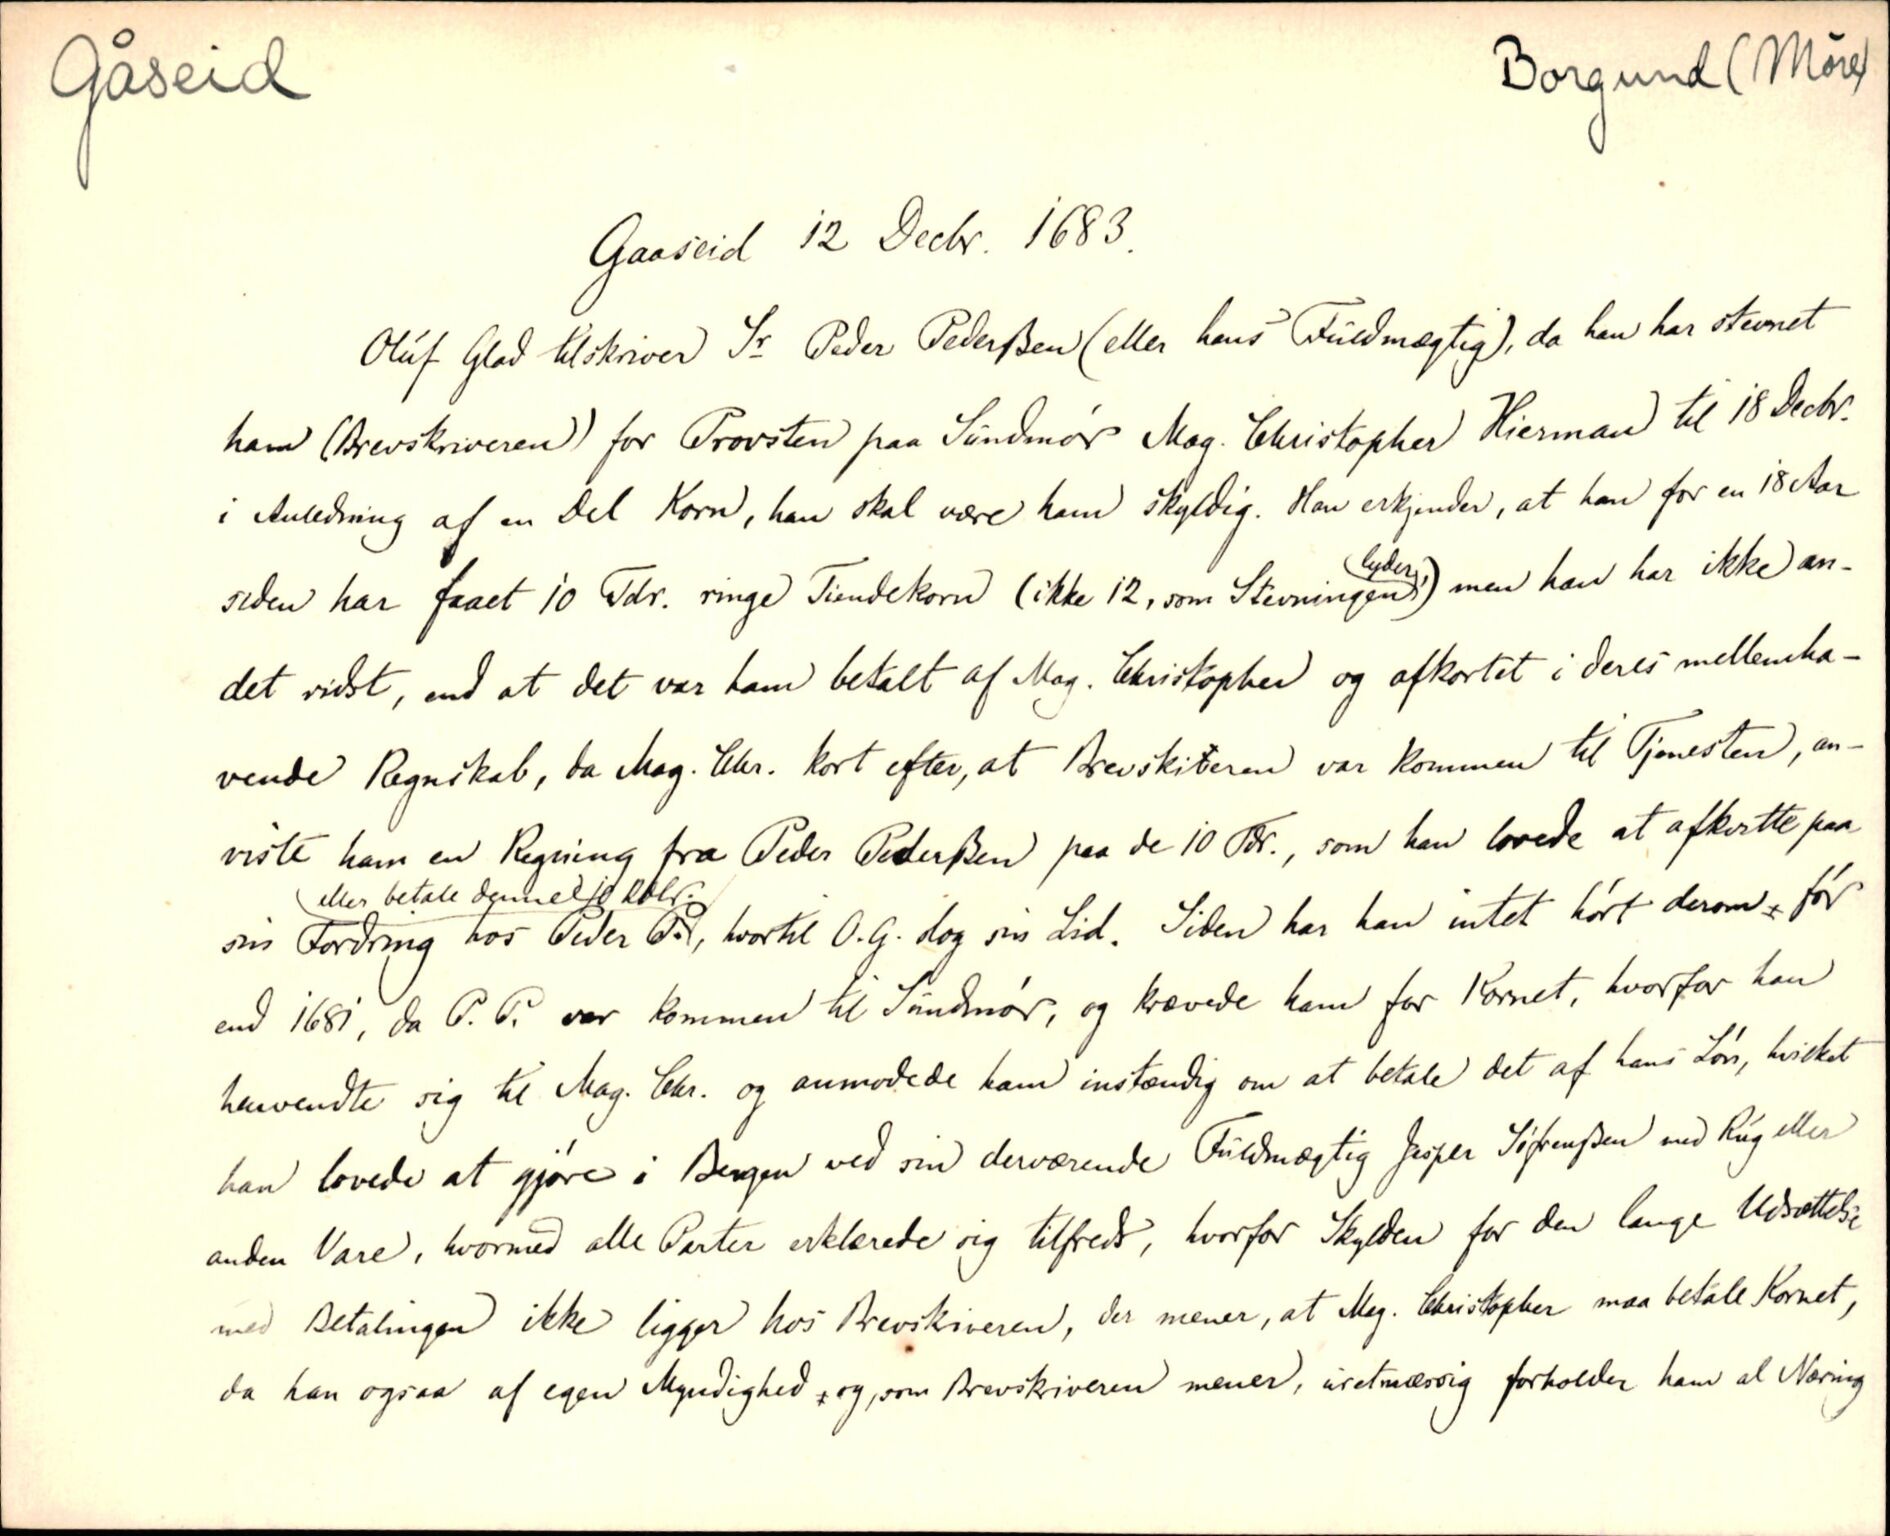 Gåseid
Borgund (Möre)
Gaaseid 12 Decbr. 1683.
Oluf Glad tilskriver Sr Peder Pederßen (eller hans Fuldmægtig), da han har stevnet
ham (Brevskriveren) for Provsten paa Sundmør Mag. Christopher Hierman til 18 Decbr.
i Anledning af en Del Korn, han skal være ham skyldig. Han erkjender, at han for en 18 Aar
siden har faaet 10 Tdr. ringe Tiendekorn (ikke 12, som Stevningen lyder,) men han har ikke an-
det vidst, end at det var ham betalt af Mag. Christopher og afkortet i deres mellemha-
vende Regnskab, da Mag. Chr. kort efter, at Brevskiveren var kommen til Tjenesten, an-
viste ham en Regning fra Peder Pederßen paa de 10 Tdr., som han lovede at afkortte paa
eller betale denne 10 Rdlr.
sin Fordring hos Peder P., hvortil O. G. slog sin Lid. Siden har han intet hørt derom før
end 1681, da P. P. var kommen til Sundmør, og krævede ham for Kornet, hvorfor han
henvendte sig til Mag. Chr. og anmodede ham instændig om at betale det af hans Løn, hvilket
han lovede at gjøre i Bergen ved sin derværende Fuldmægtig Jesper Søfrenßen med Rug eller
anden Vare, hvormed alle Parter erklærede sig tilfreds, hvorfor Skylden for den lange Udsættelse
med Betalingen ikke ligger hos Brevskriveren, der mener, at Mag. Christopher maa betale Kornet,
da han ogsaa af egen Myndighed og, som Brevskriveren mener, uretmæssig forholder ham al Næring